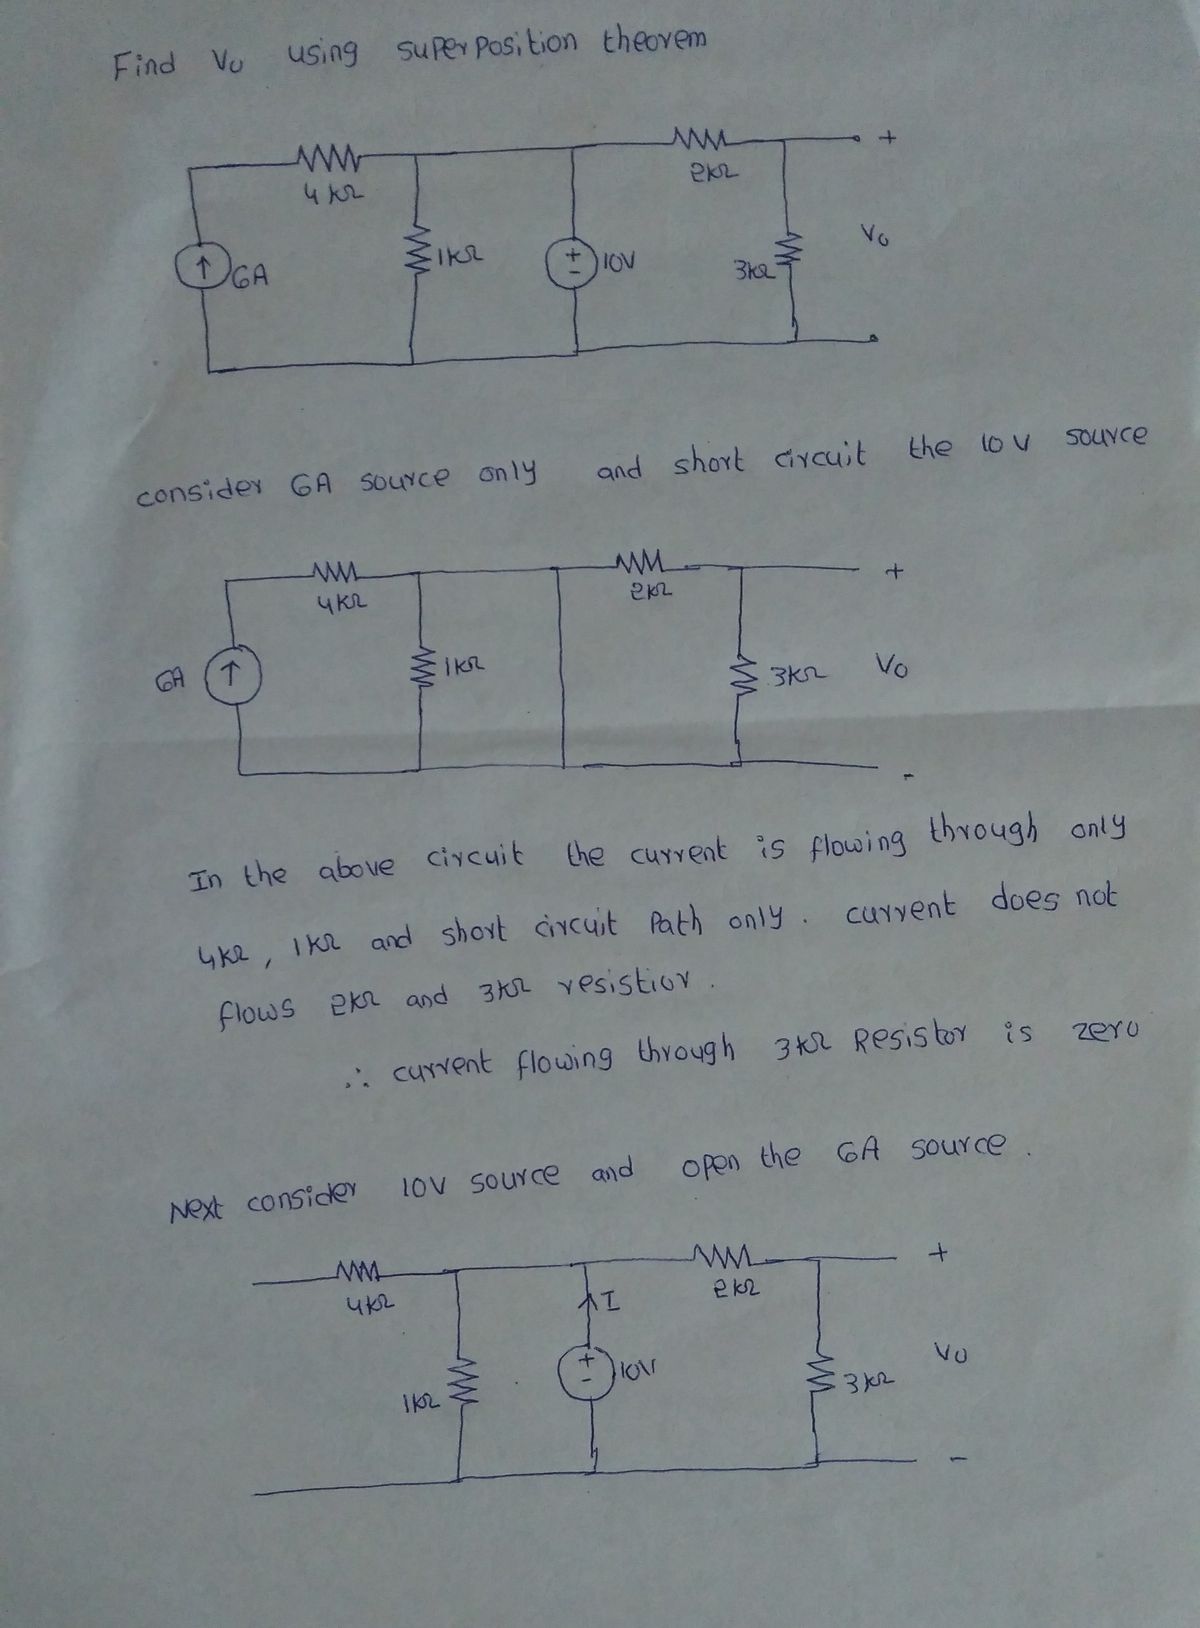 Find Vo using superposition theorem
4 kΩ
2kΩ
+
6A
1kΩ
+
-
10V
3kΩ
Vo
consider 6A source only and short circuit the 10 V source
4kΩ
2kΩ
+
6A
1kΩ
3kΩ
Vo
-
In the above circuit the current is flowing through only
4kΩ, 1kΩ and short circuit Path only. current does not
flows 2kΩ and 3kΩ resistior.
∴ current flowing through 3kΩ Resistor is zero
Next consider 10V source and open the 6A source.
4kΩ
I
2kΩ
+
1kΩ
+
-
10V
3kΩ
Vo
-